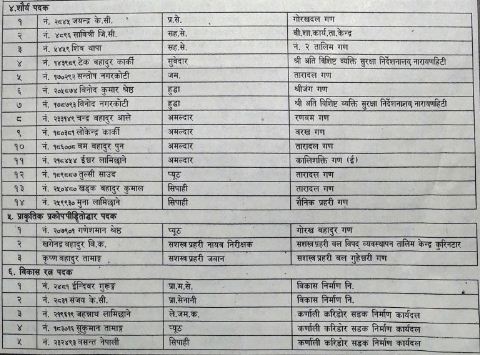 ४.शौर्य पदक
१ नं. २८४५ जयन्द्र के.सी. प्र.से. गोरखदल गण
२ नं. ४०९६ सावित्री जि.सी. सह.से. बी.शा.कार्य.ता.केन्द्र
३ नं. ४५५९ शिव थापा सह.से. नं. २ तालिम गण
४ टेक बहादुर कार्की सुवेदार श्री अति विशिष्ट व्यक्ति सुरक्षा निर्देशनालय, नारायणहिटी
५ नं. १७०२९२ सन्तोष नगरकोटी जम. तारादल गण
६ नं. २०५८७४ विनोद कुमार श्रेष्ठ हुद्दा श्रीजंग गण
७ नं. १७८७९३ विनोद नगरकोटी हुद्दा श्री अति विशिष्ट व्यक्ति सुरक्षा निर्देशनालय, नारायणहिटी
८ नं. २३३१४९ चन्द्र बहादुर आले अमल्दार रणबम गण
९ नं. १८०३८१ लोकेन्द्र कार्की अमल्दार बरख गण
१० नं. १८६००७ बम बहादुर पुन अमल्दार तारादल गण
११ नं. २१८४५४ ईश्वर लामिछाने अमल्दार कालिशक्ति गण (ई)
१२ नं. १८९८८७ तुल्सी साउद प्यूठ तारादल गण
१३ नं. २५०४८० खड्क बहादुर कुमाल सिपाही तारादल गण
१४ नं. २५९९३० मुना लामिछाने सिपाही सैनिक प्रहरी गण
५. प्राकृतिक प्रकोपपीडितोद्धार पदक
१ नं. २०७९०७ गणेशमान श्रेष्ठ प्यूठ गोरख बहादुर गण
२ खगेन्द्र बहादुर वि.क. सशस्त्र प्रहरी नायब निरीक्षक सशस्त्र प्रहरी बल विपद् व्यवस्थापन तालिम केन्द्र कुरिनटार
३ कृष्ण बहादुर तामाङ्ग सशस्त्र प्रहरी जवान सशस्त्र प्रहरी बल गुह्येश्वरी गण
६. विकास रत्न पदक
१ नं. २४८१ ईन्दिवर गुरूङ्ग प्रा.म.से. विकास निर्माण नि.
२ नं. २८३१ संजय के.सी. प्रा.सेनानी विकास निर्माण नि.
३ नं. २१९६१९ जहन्नाथ लामिछाने ले.जम.क. कर्णाली करिडोर सडक निर्माण कार्यदल
४ नं. १८३०१६ सुकुमान तामाङ्ग प्यूठ कर्णाली करिडोर सडक निर्माण कार्यदल
५ नं. २३२४९३ वसन्त नेपाली सिपाही कर्णाली करिडोर सडक निर्माण कार्यदल